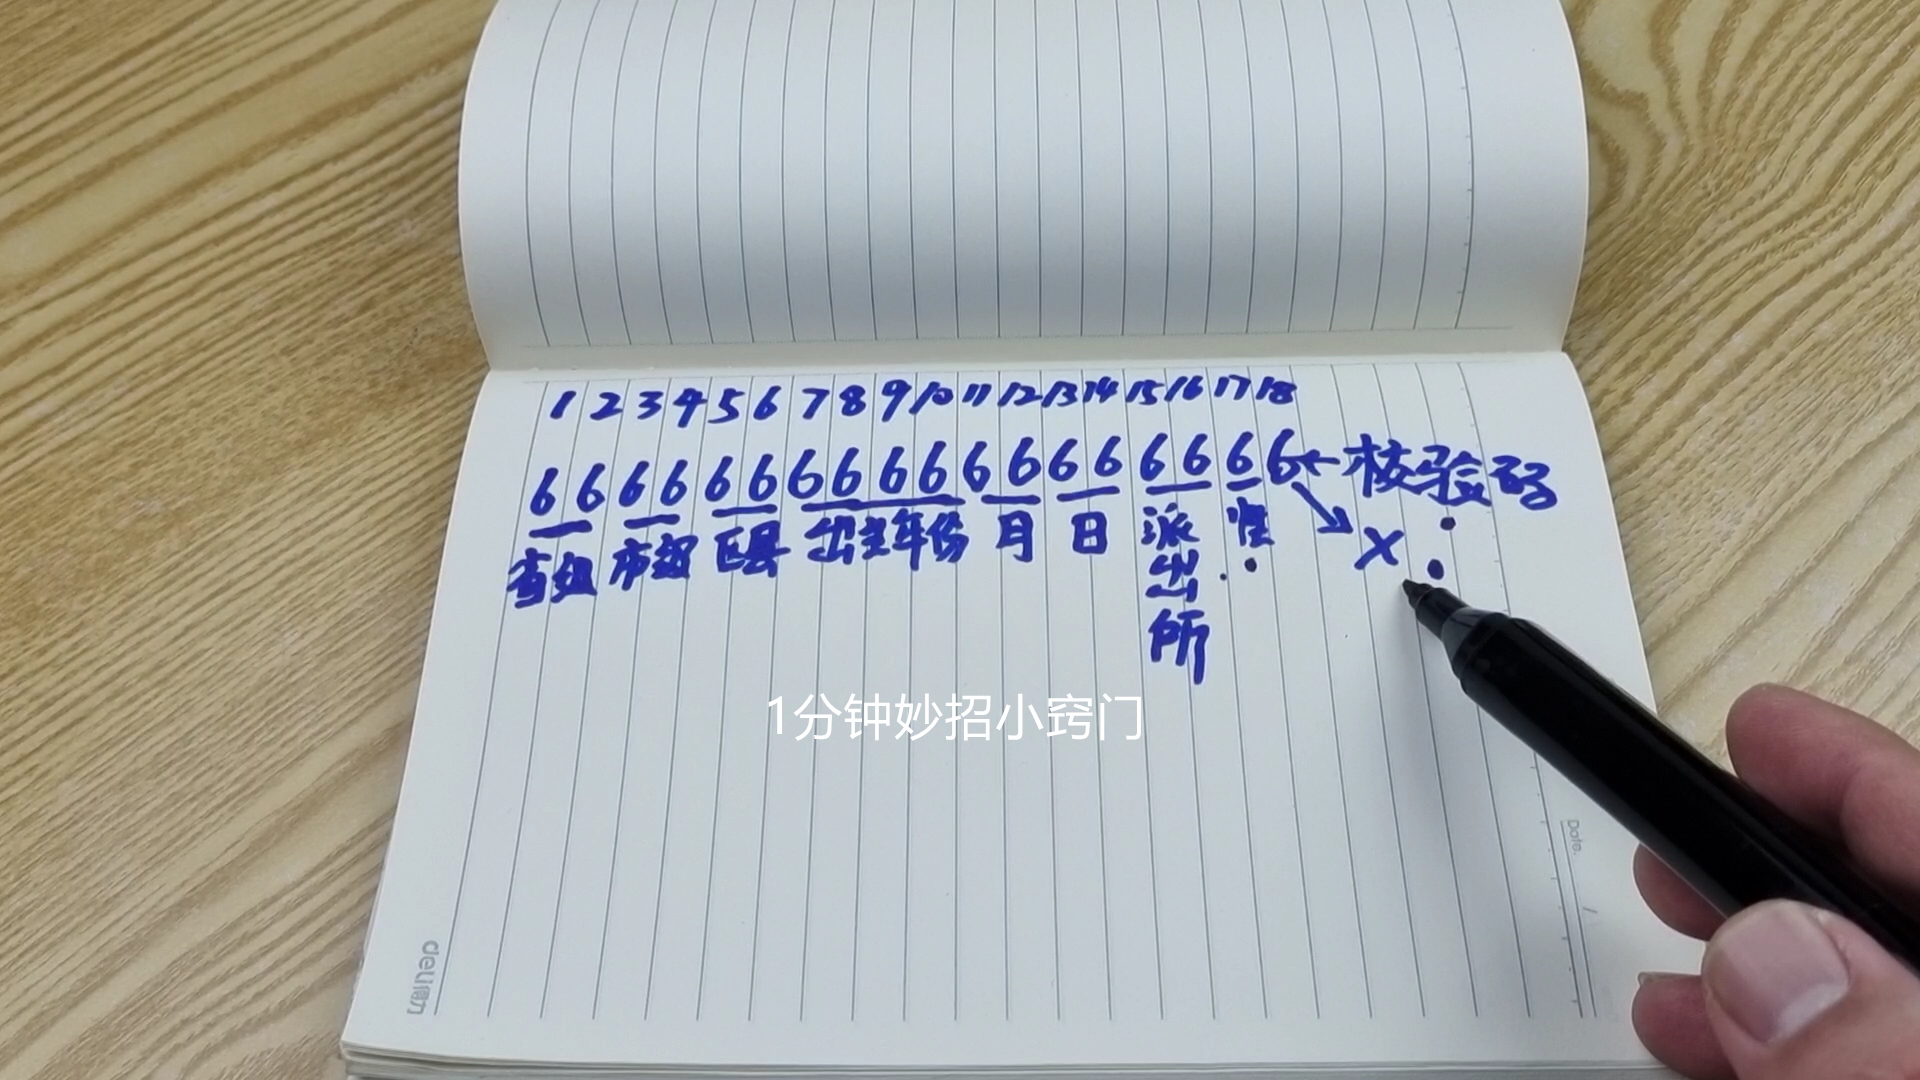 1 2 3 4 5 6 7 8 9 10 11 12 13 14 15 16 17 18
6 6 6 6 6 6 6 6 6 6 6 6 6 6 6 6 6 6 ← 核验码
省级 市级 区县 出生年份 月 日 派出所 性 X
1分钟妙招小窍门
Date. /
deli得力